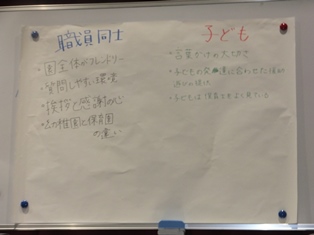 職員同士
・園全体がフレンドリー
・質問しやすい環境
・挨拶と感謝の心
・幼稚園と保育園
の違い
子ども
・言葉がけの大切さ
・子どもの発達に合わせた
・子どもは保育士をよく見ている